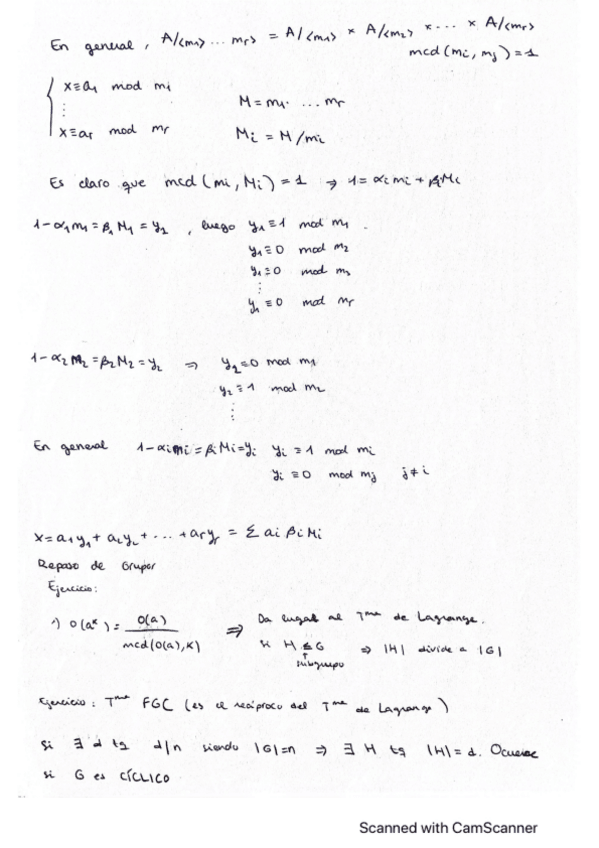 En general, A/<m1> ... mr> = A/<m1> × A/<m2> × ... × A/<mr>
mcd(mi, mj) = 1
x≡a1 mod mi
⋮
x≡ar mod mr
M = m1· ... mr
Mi = M/mi
Es claro que mcd(mi, Mi) = 1 ⇒ 1 = αi mi + βi Mi
1-α1m1 = β1 M1 = y2 , luego y1 ≡ 1 mod m1.
y1 ≡ 0 mod m2
y1 ≡ 0 mod m3
⋮
y1 ≡ 0 mod mr
1-α2 m2 = β2 M2 = y2 ⇒ y2 ≡ 0 mod m1
y2 ≡ 1 mod m2
⋮
En general 1-αi mi = βi Mi = yi yi ≡ 1 mod mi
yi ≡ 0 mod mj j≠i
x = a1y1 + a2y2 + ... + aryr = Σ ai βi Mi
Repaso de Grupos
Ejercicio:
1) O(a^k) = O(a) / mcd(O(a), k) ⇒ Da lugar al Tma de Lagrange.
Si H ≤ G ⇒ |H| divide a |G|
↑
subgrupo
Ejercicio: Tma FGC (es el recíproco del Tma de Lagrange)
Si ∃ d tq d|n siendo |G|=n ⇒ ∃ H tq |H| = d. Ocurre
si G es CÍCLICO
Scanned with CamScanner